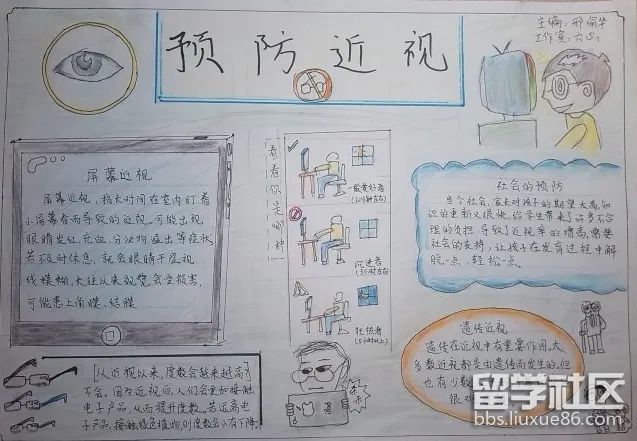 预防近视
主编:邢瑜华
工作室:六(5)
屏幕近视
屏幕近视,指长时间在室内盯着
小屏幕看而导致的近视。可能出现
眼睛发红、充血、分泌物溢出等症状
若不及时休息,就会眼睛干涩,视
线模糊,长久以来视觉会受损害,
可能患上角膜、结膜
看看你是哪种
一般爱好者
沉迷者
狂热者
社会的预防
当个社会,家长对孩子的期望太高,知
识的更新又很快,给学生带来了许多不合
理的负担,导致近视率的增高,需要
社会的支持,让孩子在发育过程中解
脱一点,轻松一点。
遗传近视
遗传在近视中有重要作用。大
多数近视都是由遗传而发生的,但
也有少数
很难
[从近视以来,度数会越来越高?
不会,因为近视后,人们会更加接触
电子产品,从而提升度数。若远离电
子产品,接触绿色植物,则度数会小有下降。
留学社区
bbs.liuxue86.com